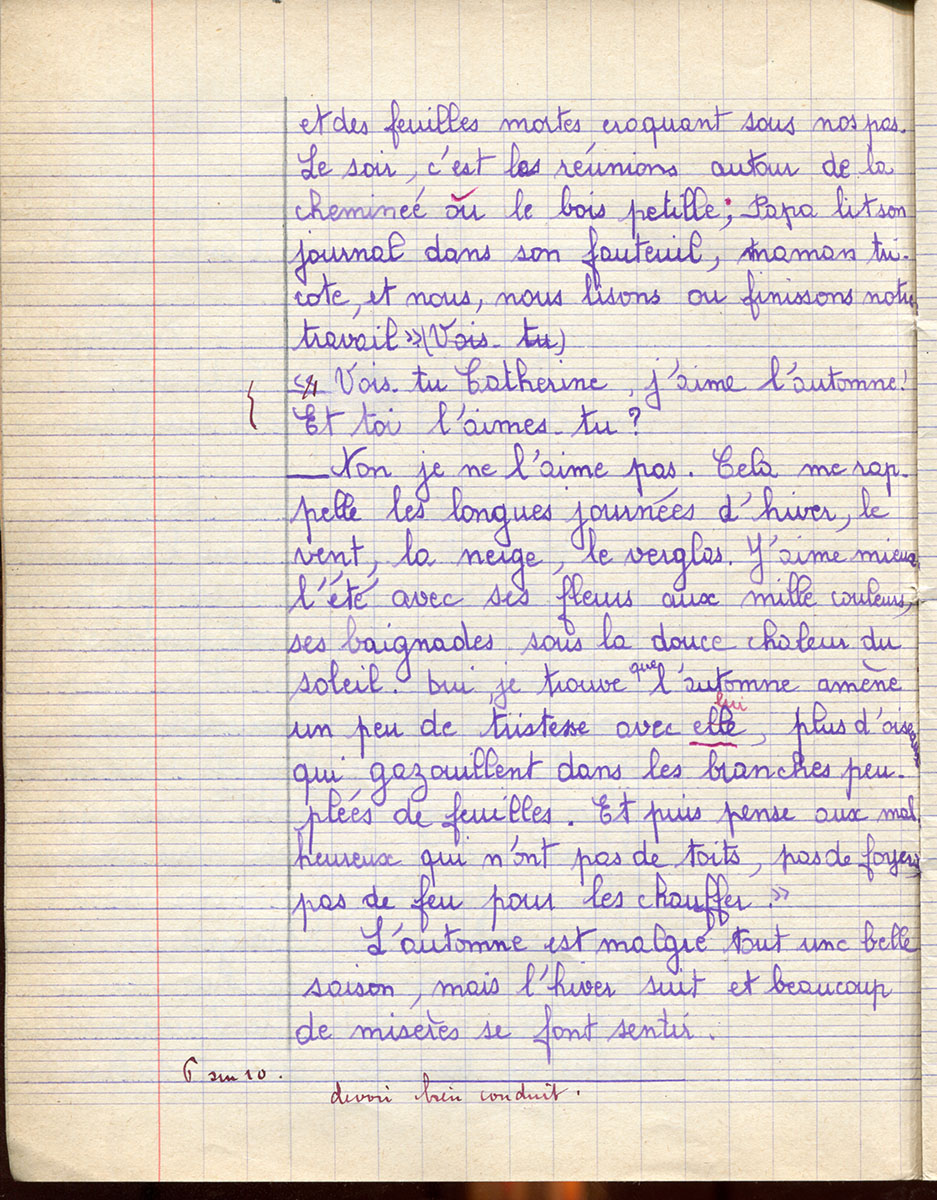 et des feuilles mortes craquant sous nos pas.
Le soir, c'est les réunions autour de la
cheminée où le bois petille; Papa lit son
journal dans son fauteuil, maman tri-
cote, et nous, nous lisons ou finissons notre
travail» (Vois-tu)
« Vois-tu Catherine, j'aime l'automne!
Et toi l'aimes-tu ?
— Non je ne l'aime pas. Cela me rap-
pelle les longues journées d'hiver, le
vent, la neige, le verglas. J'aime mieux
l'été avec ses fleurs aux mille couleurs,
ses baignades sous la douce chaleur du
soleil. Oui, je trouve que l'automne amène
lui
un peu de tristesse avec elle, plus d'oiseaux
qui gazouillent dans les branches peu-
pleés de feuilles. Et puis pense aux mal
heureux qui n'ont pas de toits, pas de foyers
pas de feu pour les chauffer.»
L'automne est malgré tout une belle
saison, mais l'hiver suit et beaucoup
de misères se font sentir.
6 sur 10.
devoir bien conduit.